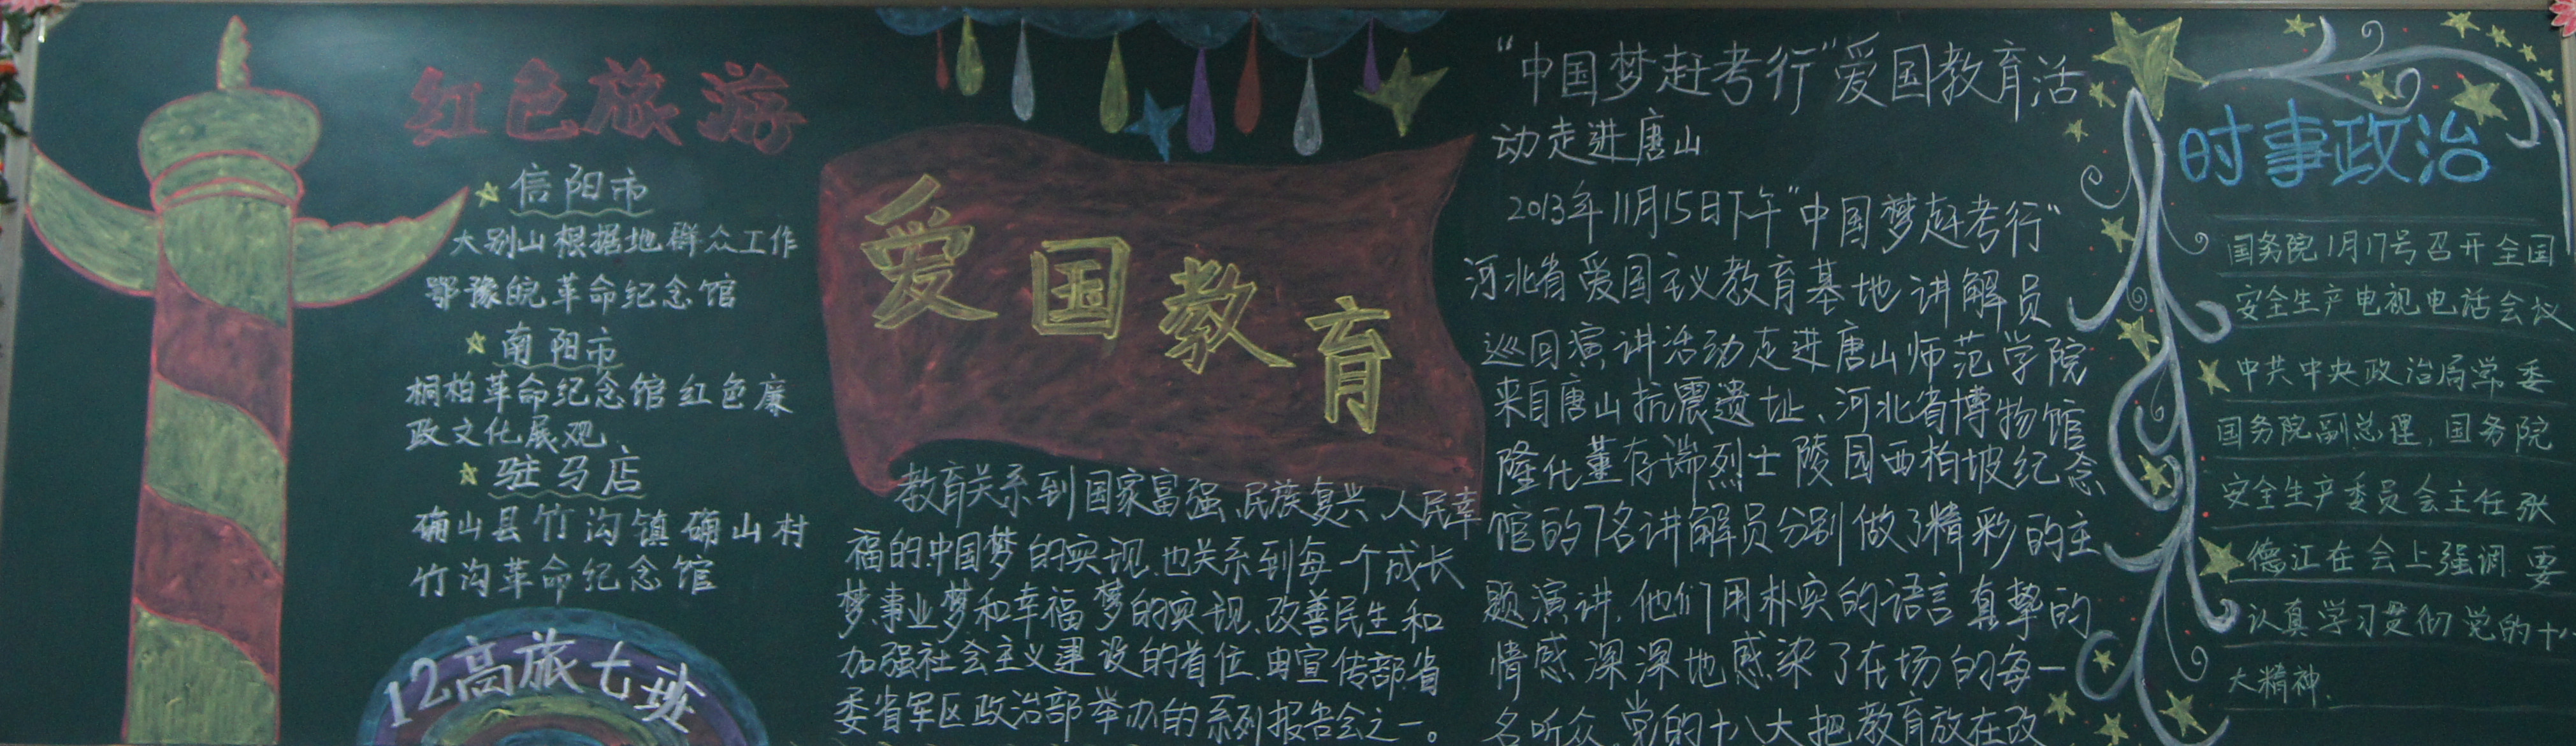 红色旅游
信阳市
大别山根据地群众工作
鄂豫皖革命纪念馆
南阳市
桐柏革命纪念馆红色廉
政文化展观
驻马店
确山县竹沟镇确山村
竹沟革命纪念馆
12高旅七班
爱国教育
教育关系到国家富强、民族复兴、人民幸
福的中国梦的实现、也关系到每一个成长
梦、事业梦和幸福梦的实现、改善民生和
加强社会主义建设的首位、由宣传部、省
委省军区政治部举办的系列报告会之一。
“中国梦赶考行”爱国教育活
动走进唐山
2013年11月15日下午“中国梦赶考行”
河北省爱国主义教育基地讲解员
巡回演讲活动走进唐山师范学院
来自唐山抗震遗址、河北省博物馆
隆化董存瑞烈士陵园西柏坡纪念
馆的7名讲解员分别做了精彩的主
题演讲,他们用朴实的语言真挚的
情感、深深地感染了在场的每一
名听众、党的十八大把教育放在改
时事政治
国务院1月17号召开全国
安全生产电视电话会议
中共中央政治局常委
国务院副总理,国务院
安全生产委员会主任张
德江在会上强调.要
认真学习贯彻党的十八
大精神.